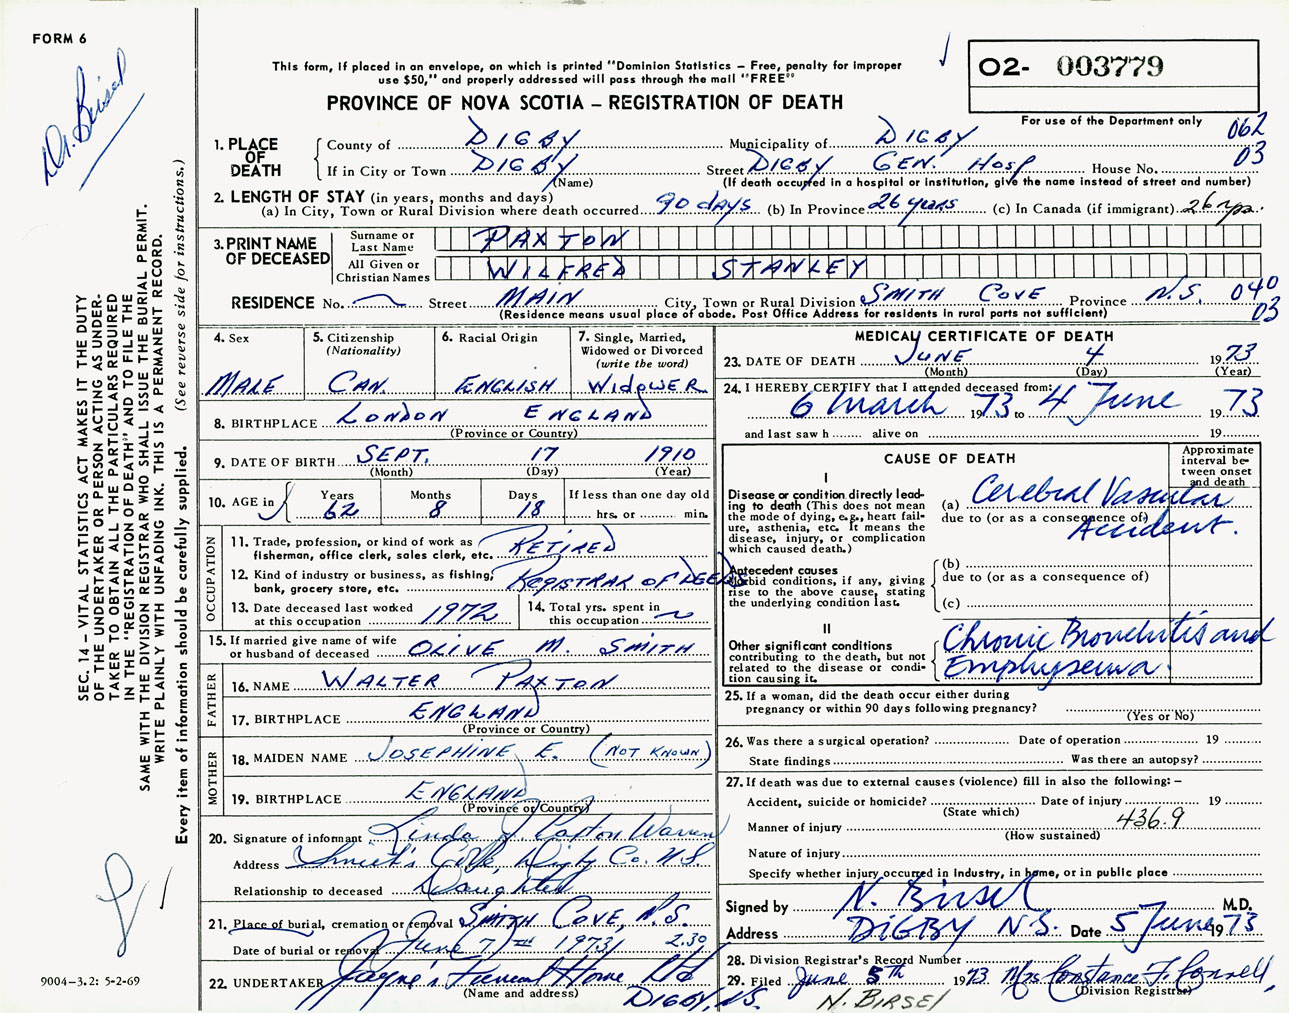 FORM 6
Dr. Birsel
This form, if placed in an envelope, on which is printed "Dominion Statistics – Free, penalty for improper
use $50," and properly addressed will pass through the mail "FREE"
O2- 003779
PROVINCE OF NOVA SCOTIA – REGISTRATION OF DEATH
For use of the Department only
062
03
1. PLACE OF DEATH
County of DIGBY Municipality of DIGBY
If in City or Town DIGBY Street DIGBY GEN. HOSP House No.
(Name) (If death occurred in a hospital or institution, give the name instead of street and number)
2. LENGTH OF STAY (in years, months and days)
(a) In City, Town or Rural Division where death occurred 90 days (b) In Province 26 years (c) In Canada (if immigrant) 26 yrs.
3. PRINT NAME OF DECEASED
Surname or Last Name PAXTON
All Given or Christian Names WILFRED STANLEY
RESIDENCE No. Street MAIN City, Town or Rural Division SMITH COVE Province N.S. 040
(Residence means usual place of abode. Post Office Address for residents in rural parts not sufficient) 03
4. Sex MALE
5. Citizenship (Nationality) CAN.
6. Racial Origin ENGLISH
7. Single, Married, Widowed or Divorced (write the word) WIDOWER
8. BIRTHPLACE LONDON ENGLAND
(Province or Country)
9. DATE OF BIRTH SEPT. 17 1910
(Month) (Day) (Year)
10. AGE in Years 62 Months 8 Days 18 If less than one day old
hrs. or min.
OCCUPATION
11. Trade, profession, or kind of work as fisherman, office clerk, sales clerk, etc. RETIRED
12. Kind of industry or business, as fishing, bank, grocery store, etc. REGISTRAR OF DEEDS
13. Date deceased last worked at this occupation 1972
14. Total yrs. spent in this occupation
15. If married give name of wife or husband of deceased OLIVE M. SMITH
FATHER
16. NAME WALTER PAXTON
17. BIRTHPLACE ENGLAND
(Province or Country)
MOTHER
18. MAIDEN NAME JOSEPHINE E. (NOT KNOWN)
19. BIRTHPLACE ENGLAND
(Province or Country)
20. Signature of informant Linda J. Paxton Warren
Address Smith's Cove, Digby Co. N.S
Relationship to deceased Daughter
21. Place of burial, cremation or removal SMITH COVE, N.S.
Date of burial or removal June 7TH 1973 2.30
22. UNDERTAKER Jayne's Funeral Home Ltd
(Name and address) DIGBY, N.S.
MEDICAL CERTIFICATE OF DEATH
23. DATE OF DEATH JUNE 4 1973
(Month) (Day) (Year)
24. I HEREBY CERTIFY that I attended deceased from:
6 March 1973 to 4 June 1973
and last saw h alive on 19
CAUSE OF DEATH
Approximate interval between onset and death
I
Disease or condition directly leading to death (This does not
mean the mode of dying, e.g., heart failure,
asthenia, etc. It means the
disease, injury, or complication
which caused death.)
(a) Cerebral Vascular
due to (or as a consequence of) Accident.
Antecedent causes
Morbid conditions, if any, giving
rise to the above cause, stating
the underlying condition last.
(b)
due to (or as a consequence of)
(c)
II
Other significant conditions
contributing to the death, but not
related to the disease or condition
causing it.
Chronic Bronchitis and
Emphysema.
25. If a woman, did the death occur either during
pregnancy or within 90 days following pregnancy?
(Yes or No)
26. Was there a surgical operation? Date of operation 19
State findings Was there an autopsy?
27. If death was due to external causes (violence) fill in also the following: –
Accident, suicide or homicide? Date of injury 19
(State which)
Manner of injury 436.9
(How sustained)
Nature of injury
Specify whether injury occurred in industry, in home, or in public place
Signed by N. Birsel M.D.
Address DIGBY N.S. Date 5 June 1973
28. Division Registrar's Record Number
29. Filed June 5th 1973 Mrs Constance F. Connell
(Division Registrar)
N. BIRSEL
SEC. 14 – VITAL STATISTICS ACT MAKES IT THE DUTY
OF THE UNDERTAKER OR PERSON ACTING AS UNDER-
TAKER TO OBTAIN ALL THE PARTICULARS REQUIRED
IN THE "REGISTRATION OF DEATH" AND TO FILE THE
SAME WITH THE DIVISION REGISTRAR WHO SHALL ISSUE THE BURIAL PERMIT.
WRITE PLAINLY WITH UNFADING INK. THIS IS A PERMANENT RECORD.
Every item of information should be carefully supplied. (See reverse side for instructions.)
9004-3.2: 5-2-69